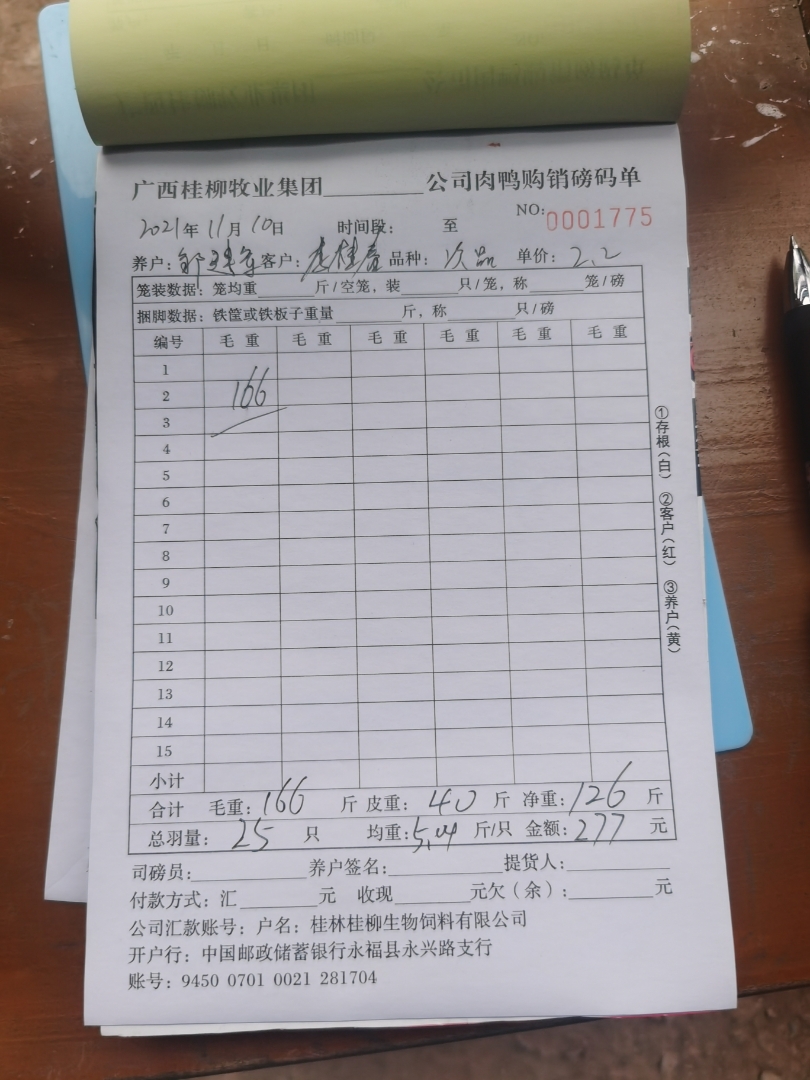 广西桂柳牧业集团________公司肉鸭购销磅码单
2021年11月10日 时间段: 至 NO:0001775
养户: 客户:李桂春 品种:次品 单价:2.2
笼装数据: 笼均重______斤/空笼, 装______只/笼, 称______笼/磅
捆脚数据: 铁筐或铁板子重量______斤, 称______只/磅
编号 毛重 毛重 毛重 毛重 毛重 毛重
1
2 166
3
4
5
6
7
8
9
10
11
12
13
14
15
小计
合计 毛重:166斤 皮重:40斤 净重:126斤
总羽量:25只 均重:5.04斤/只 金额:277元
司磅员:________ 养户签名:________ 提货人:________
付款方式: 汇______元 收现______元欠(余):______元
公司汇款账号: 户名: 桂林桂柳生物饲料有限公司
开户行: 中国邮政储蓄银行永福县永兴路支行
账号: 9450 0701 0021 281704
①存根(白) ②客户(红) ③养户(黄)